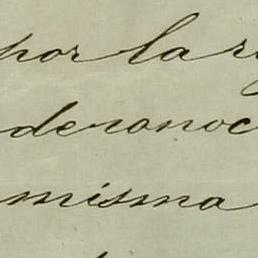 por la r
deronoc
misma